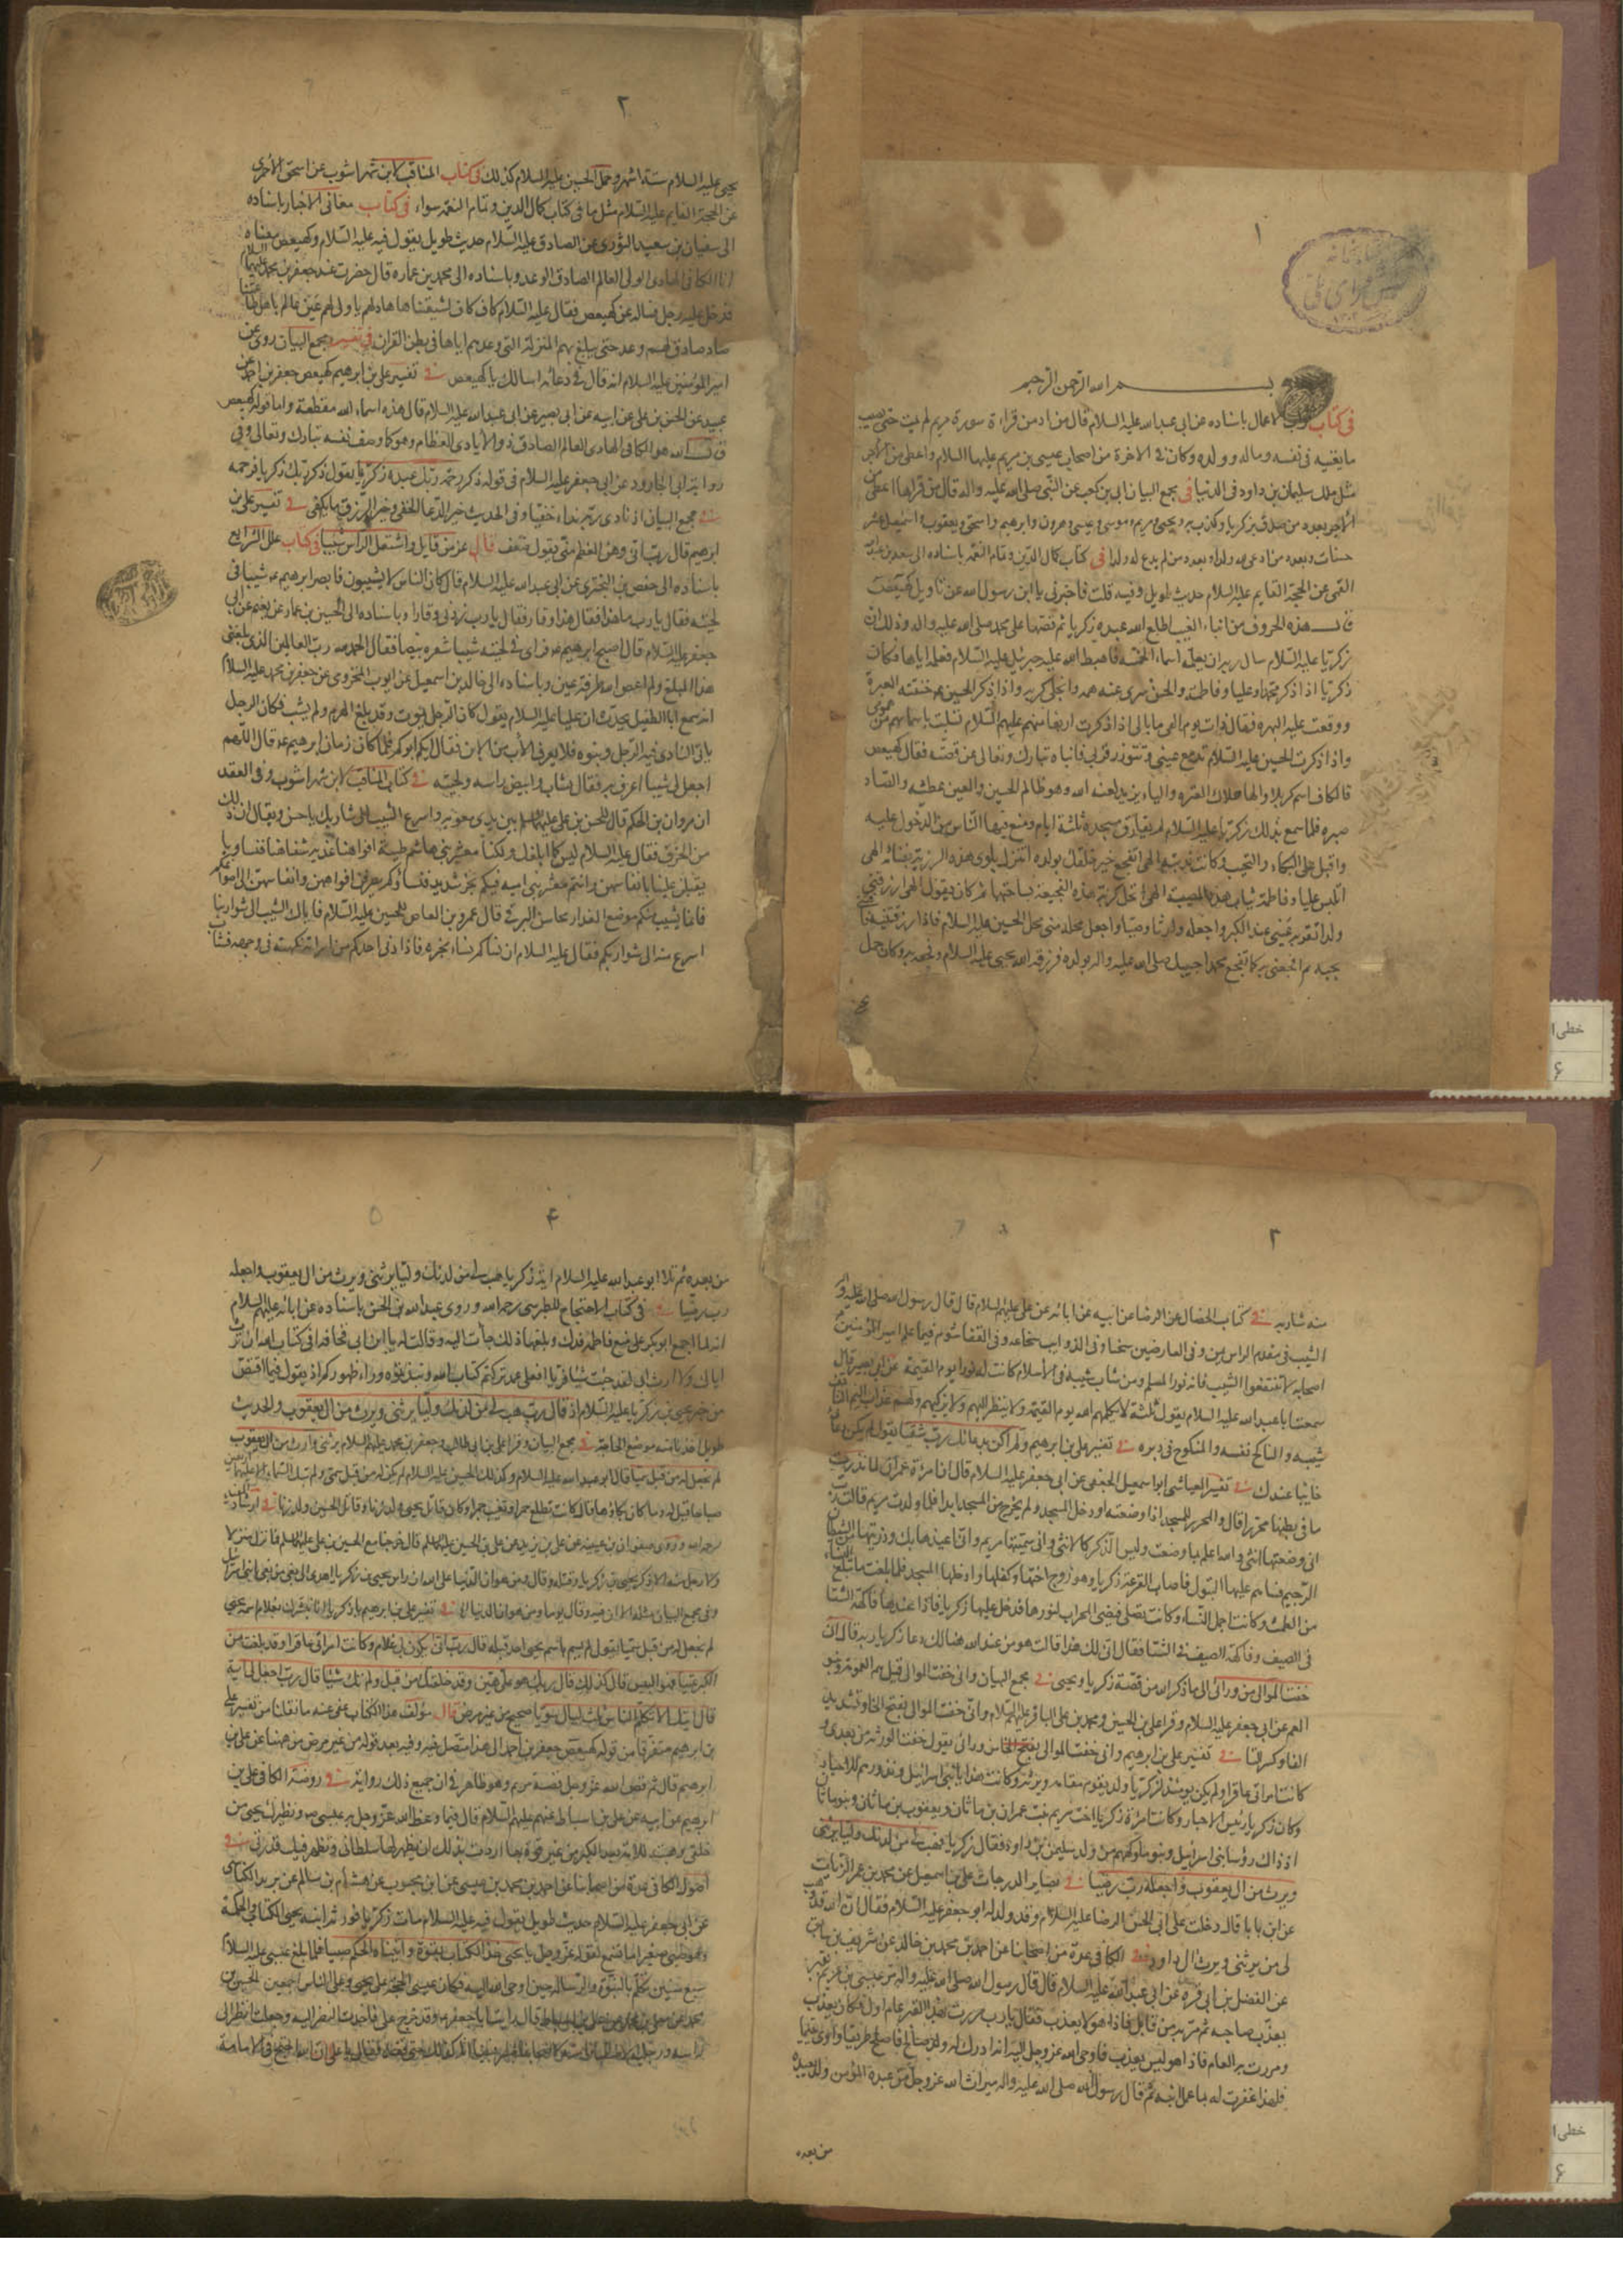 ١
بسم الله الرحمن الرحيم
فى كتاب ثواب الاعمال باسناده عن ابى عبد الله عليه السلام قال من ادمن قراءة سورة مريم لم يمت حتى يصيب
ما يغنيه فى نفسه وماله وولده وكان فى الاخرة من اصحاب عيسى بن مريم عليهما السلام واعطى من الاجر
مثل ملك سليمان بن داود فى الدنيا فى مجمع البيان ابى بن كعب عن النبى صلى الله عليه واله قال من قراها اعطى من
الاجر بعدد من صدق بزكريا وكذب به ويحيى ومريم وموسى وعيسى وهرون وابرهيم واسحق ويعقوب واسمعيل عشر
حسنات وبعدد من ادعى لله ولدا وبعدد من لم يدع له ولدا فى كتاب كمال الدين وتمام النعمة باسناده الى سعد بن عبد الله
القمى عن الحجة القايم عليه السلام حديث طويل وفيه قلت فاخبرنى يا ابن رسول الله عن تاويل كهيعص
قال هذه الحروف من انباء الغيب اطلع الله عبده زكريا ثم قصها على محمد صلى الله عليه واله وذلك ان
زكريا عليه السلام سال ربه ان يعلمه اسماء الخمسة فاهبط الله عليه جبرئيل عليه السلام فعلمه اياها فكان
زكريا اذا ذكر محمدا وعليا وفاطمة والحسن سرى عنه همه وانجلى كربه واذا ذكر الحسين خنقته العبرة
ووقعت عليه البهرة فقال ذات يوم الهى ما بالى اذا ذكرت اربعا منهم عليهم السلام تسليت باسمائهم من همومى
واذا ذكرت الحسين عليه السلام تدمع عينى وتثور زفرتى فانباه تبارك وتعالى عن قصته فقال كهيعص
فالكاف اسم كربلا والهاء هلاك العترة والياء يزيد لعنه الله وهو ظالم الحسين والعين عطشه والصاد
صبره فلما سمع بذلك زكريا عليه السلام لم يفارق مسجده ثلثة ايام ومنع فيها الناس من الدخول عليه
واقبل على البكاء والنحيب وكانت ندبته الهى اتفجع خير خلقك بولده اتنزل بلوى هذه الرزية بفنائه الهى
اتلبس عليا وفاطمة ثياب هذه المصيبة الهى اتحل كربة هذه الفجيعة بساحتهما ثم كان يقول الهى ارزقنى
ولدا تقر به عينى عند الكبر واجعله وارثا وصيا واجعل محله منى محل الحسين عليه السلام فاذا رزقتنيه فافتنى
بحبه ثم افجعنى به كما تفجع محمدا حبيبك صلى الله عليه واله بولده فرزقه الله يحيى عليه السلام وفجعه به وكان حمل
٢
يحيى عليه السلام ستة اشهر وحمل الحسين عليه السلام كذلك فى كتاب المناقب لابن شهراشوب عن اسحق الاحمرى
عن الحجة القايم عليه السلام مثل ما فى كتاب كمال الدين وتمام النعمة سواء فى كتاب معانى الاخبار باسناده
الى سفيان بن سعيد الثورى عن الصادق عليه السلام حديث طويل يقول فيه عليه السلام وكهيعص معناه
انا الكافى الهادى الولى العالم الصادق الوعد وباسناده الى محمد بن عماره قال حضرت عند جعفر بن محمد عليهما السلام
فدخل عليه رجل فساله عن كهيعص فقال عليه السلام كاف كاف لشيعتنا ها هاد لهم يا ولى لهم عين عالم باهل طاعتنا
صاد صادق لهم وعد حتى يبلغ بهم المنزلة التى وعدهم اياها فى بطن القران فى تفسير مجمع البيان روى عن
امير المؤمنين عليه السلام انه قال فى دعائه اسالك يا كهيعص فى تفسير على بن ابرهيم كهيعص جعفر بن احمد عن
عبيد عن الحسن بن على عن ابيه عن ابى بصير عن ابى عبد الله عليه السلام قال هذه اسماء الله مقطعة واما قوله كهيعص
قال الله هو الكافى الهادى العالم الصادق ذو الايادى العظام وهو كما وصف نفسه تبارك وتعالى وفى
رواية ابى الجارود عن ابى جعفر عليه السلام فى قوله ذكر رحمة ربك عبده زكريا يقول ذكر ربك زكريا فرحمه
فى مجمع البيان اذ نادى ربه نداء خفيا وفى الحديث خير الدعا الخفى وخير الرزق ما يكفى فى تفسير على بن
ابرهيم قال رب انى وهن العظم منى يقول ضعف قال عز من قايل واشتعل الراس شيبا فى كتاب علل الشرايع
باسناده الى حفص بن البخترى عن ابى عبد الله عليه السلام قال كان الناس لا يشيبون فابصر ابرهيم شيبا فى
لحيته فقال يا رب ما هذا فقال هذا وقار فقال يا رب زدنى وقارا وباسناده الى الحسين بن عمار عن نعيم عن ابى
جعفر عليه السلام قال اصبح ابرهيم فراى فى لحيته شيبا شعرة بيضا فقال الحمد لله رب العالمين الذى بلغنى
هذا المبلغ ولم اعص الله طرفة عين وباسناده الى خالد بن اسمعيل عن ايوب المخزومى عن جعفر بن محمد عليه السلام
انه سمع ابا الطفيل يحدث ان عليا عليه السلام يقول كان الرجل يموت وقد بلغ الهرم ولم يشب فكان الرجل
ياتى النادى فيه الرجل وبنوه فلا يعرف الاب من الابن فقال ايكم ابوكم فلما كان زمان ابرهيم قال اللهم
اجعل لى شيبا اعرف به فقال فشاب وابيض راسه ولحيته فى كتاب المناقب لابن شهراشوب وفى العقد
ان مروان بن الحكم قال للحسن بن على عليهما السلام بين يدى معوية واسرع الشيب الى شاربك يا حسن ويقال ان ذلك
من الخرق فقال عليه السلام ليس كما بلغك ولكنا معشر بنى هاشم طيبة افواهنا عذبة شفاهنا فنساؤنا
يقبلن علينا بانفاسهن وانتم معشر بنى اميه فيكم بخر شديد فنساؤكم يصرفن افواههن وانفاسهن الى اصداغكم
فانما يشيب منكم موضع العذار
اسرع منه الى شواربكم فقال عليه السلام ان نساءكم نساء بخرة فاذا دنى احدكم من امراته نكهته فى وجهه فشاب
٣
منه شاربه فى كتاب الخصال عن الرضا عن ابيه عن ابائه عن على عليهم السلام قال قال رسول الله صلى الله عليه واله
الشيب فى مقدم الراس يمن وفى العارضين سخا وفى الذوايب شجاعة وفى القفا شوم فيما علم امير المؤمنين
اصحابه لا تنتفوا الشيب فانه نور المسلم ومن شاب شيبة فى الاسلام كانت له نورا يوم القيمة عن ابى بصير قال
سمعت ابا عبد الله عليه السلام يقول ثلثة لا يكلمهم الله يوم القيمة ولا ينظر اليهم ولا يزكيهم ولهم عذاب اليم الناتف
شيبه والناكح نفسه والمنكوح فى دبره فى تفسير على بن ابرهيم ولم اكن بدعائك رب شقيا يقول لم يكن دعائى
خايبا عندك فى تفسير العياشى ابو اسمعيل الجعفى عن ابى جعفر عليه السلام قال ان امراة عمران لما نذرت
ما فى بطنها محررا قال والمحرر للمسجد اذا وضعته او دخل المسجد ولم يخرج من المسجد ابدا فلما ولدت مريم قالت رب
انى وضعتها انثى والله اعلم بما وضعت وليس الذكر كالانثى وانى سميتها مريم وانى اعيذها بك وذريتها من الشيطان
الرجيم فساهم عليها البتول فاصاب القرعة زكريا وهو زوج اختها وكفلها وادخلها المسجد فلما بلغت ما تبلغ النساء
من الطمث وكانت اجمل النساء وكانت تصلى فيضئ المحراب لنورها فدخل عليها زكريا فاذا عندها فاكهة الشتا
فى الصيف وفاكهة الصيف فى الشتا فقال انى لك هذا قالت هو من عند الله هنالك دعا زكريا ربه قال انى
خفت الموالى من ورائى الى ما ذكر الله من قصة زكريا ويحيى فى مجمع البيان وانى خفت الموالى قيل هم العمومة وبنو
العم عن ابى جعفر عليه السلام وقرا على بن الحسين ومحمد بن على الباقر عليهم السلام وانى خفت الموالى بفتح الخا وتشديد
الفا وكسر التا فى تفسير على بن ابرهيم وانى خفت الموالى من ورائى يقول خفت الورثة من بعدى و
كانت امراتى عاقرا ولم يكن يومئذ لزكريا ولد يقوم مقامه ويرثه وكانت هدايا بنى اسرائيل ونذورهم للاحبار
وكان زكريا رئيس الاحبار وكانت امراة زكريا اخت مريم بنت عمران بن ماثان ويعقوب بن ماثان وبنو ماثان
اذ ذاك رؤسا بنى اسرائيل وبنو ملوكهم من ولد سليمن بن داود فقال زكريا فهب لى من لدنك وليا يرثنى
ويرث من ال يعقوب واجعله رب رضيا فى بصاير الدرجات على بن اسمعيل عن محمد بن عمر الزيات
عن ابن بابا قال دخلت على ابى الحسن الرضا عليه السلام وقد ولد له ابو جعفر عليه السلام فقال ان الله قد وهب
لى من يرثنى ويرث ال داود فى الكافى عدة من اصحابنا عن احمد بن محمد بن خالد عن شريف بن سابق
عن الفضل بن ابى قرة عن ابى عبد الله عليه السلام قال قال رسول الله صلى الله عليه واله مر عيسى بن مريم بقبر
يعذب صاحبه ثم مر به من قابل فاذا هو لا يعذب فقال يا رب مررت بهذا القبر عام اول فكان يعذب
ومررت به العام فاذا هو ليس يعذب فاوحى الله عز وجل اليه انه ادرك له ولد صالح فاصلح طريقا واوى يتيما
فلهذا غفرت له بما عمل ابنه ثم قال رسول الله صلى الله عليه واله ميراث الله عز وجل من عبده المؤمن ولد يعبده
من بعده
۴
من بعده ثم تلا ابو عبد الله عليه السلام اية زكريا هب لى من لدنك وليا يرثنى ويرث من ال يعقوب واجعله
رب رضيا فى كتاب الاحتجاج للطبرسى رحمه الله وروى عبد الله بن الحسن باسناده عن ابائه عليهم السلام
انه لما اجمع ابو بكر على منع فاطمة فدك وبلغها ذلك جاءت اليه وقالت له يا ابن ابى قحافه افى كتاب الله ان ترث
اباك ولا ارث ابى لقد جئت شيئا فريا افعلى عمد تركتم كتاب الله ونبذتموه وراء ظهوركم اذ يقول فيما اقتص
من خبر يحيى بن زكريا عليه السلام اذ قال رب هب لى من لدنك وليا يرثنى ويرث من ال يعقوب والحديث
طويل اخذنا منه موضع الحاجة فى مجمع البيان وقرا على بن ابى طالب وجعفر بن محمد عليهم السلام يرثنى وارث من ال يعقوب
لم نجعل له من قبل سميا قال ابو عبد الله عليه السلام وكذلك الحسين عليه السلام لم يكن له من قبل سمى ولم تبك السماء الا عليهما اربعين
صباحا قيل له وما كان بكاؤها قال كانت تطلع حمرا وتغيب حمرا وكان قاتل يحيى ولد زنا وقاتل الحسين ولد زنا فى ارشاد المفيد
رحمه الله وروى سفيان بن عيينه عن على بن زيد عن على بن الحسين عليهما السلام قال خرجنا مع الحسين بن على عليهما السلام فما نزل منزلا
ولا رحل منه الا ذكر يحيى بن زكريا وقتله وقال ومن هوان الدنيا على الله ان راس يحيى بن زكريا اهدى الى بغى من بغايا بنى اسرائيل
وفى مجمع البيان مثله الا ان فيه وقال يوما ومن هوان الدنيا الخ فى تفسير على بن ابرهيم يا زكريا انا نبشرك بغلام اسمه يحيى
لم نجعل له من قبل سميا يقول لم يسم باسم يحيى احد قبله قال رب انى يكون لى غلام وكانت امراتى عاقرا وقد بلغت من
الكبر عتيا فهو اليوس قال كذلك قال ربك هو على هين وقد خلقتك من قبل ولم تك شيئا قال رب اجعل لى اية
قال ايتك الا تكلم الناس ثلث ليال سويا صحيحا من غير مرض قال مؤلف هذا الكتاب عفى عنه ما نقلنا من تفسير على
بن ابرهيم متفرقا من قوله كهيعص جعفر بن احمد الى هنا متصل فيه وفيه بعد قوله من غير مرض من هنا عن على بن
ابرهيم قال ثم قص الله عز وجل قصة مريم وهو ظاهر فى ان جميع ذلك رواية فى روضة الكافى على بن
ابرهيم عن ابيه عن على بن اسباط عنهم عليهم السلام قال فيما وعظ الله عز وجل به عيسى ونظيرك يحيى من
خلقى وهبته لامه بعد الكبر من غير قوة بها اردت بذلك ان يظهر لها سلطانى ويظهر فيك قدرتى فى
اصول الكافى عدة من اصحابنا عن احمد بن محمد بن عيسى عن ابن محبوب عن هشام بن سالم عن بريد الكناسى
عن ابى جعفر عليه السلام حديث طويل يقول فيه عليه السلام مات زكريا فورثه ابنه يحيى الكتاب والحكمة
وهو صبى صغير اما تسمع لقوله عز وجل يا يحيى خذ الكتاب بقوة واتيناه الحكم صبيا فلما بلغ عيسى عليه السلام
سبع سنين تكلم بالنبوة والرسالة حين اوحى الله اليه فكان عيسى الحجة على يحيى وعلى الناس اجمعين الحسين بن
محمد عن معلى بن محمد عن على بن اسباط قال رايت ابا جعفر وقد خرج على فاخذت النظر اليه وجعلت انظر الى